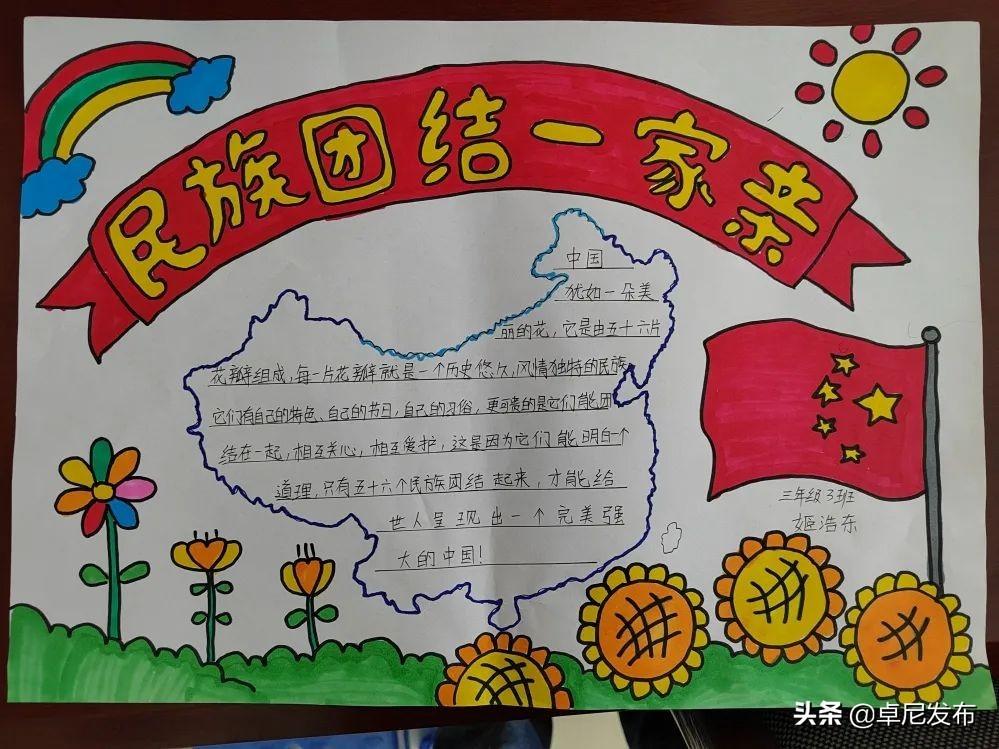 民族团结一家亲
中国
犹如一朵美
丽的花,它是由五十六片
花瓣组成,每一片花瓣就是一个历史悠久,风情独特的民族
它们有自己的特色、自己的节日,自己的习俗,更可贵的是它们能团
结在一起,相互关心,相互爱护,这是因为它们能明白一个
道理,只有五十六个民族团结起来,才能给
世人呈现出一个完美强
大的中国!
三年级3班
姬浩东
头条 @卓尼发布